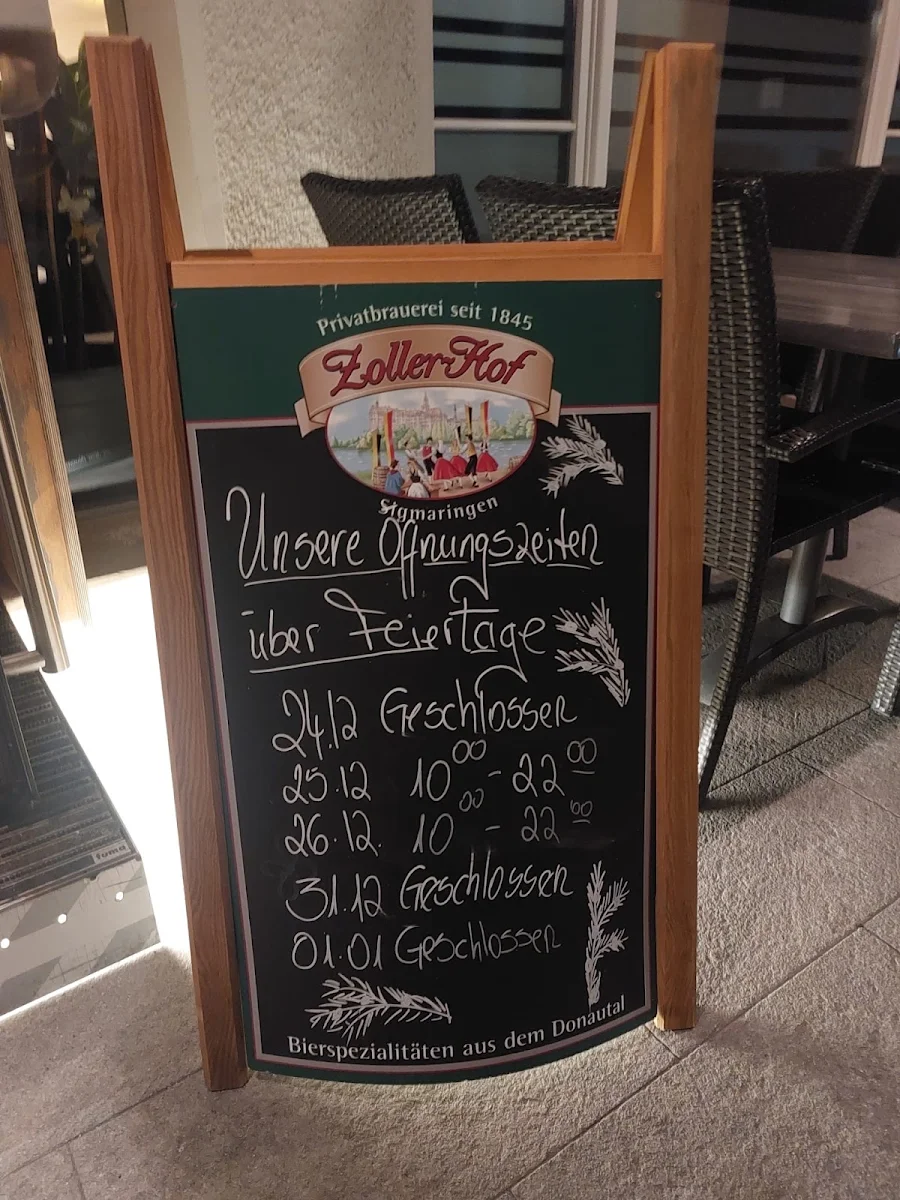 Privatbrauerei seit 1845
Zoller-Hof
Sigmaringen
Unsere Öffnungszeiten
über Feiertage
24.12 Geschlossen
25.12 10⁰⁰ - 22⁰⁰
26.12. 10⁰⁰ - 22⁰⁰
31.12 Geschlossen
01.01 Geschlossen
Bierspezialitäten aus dem Donautal
fuma